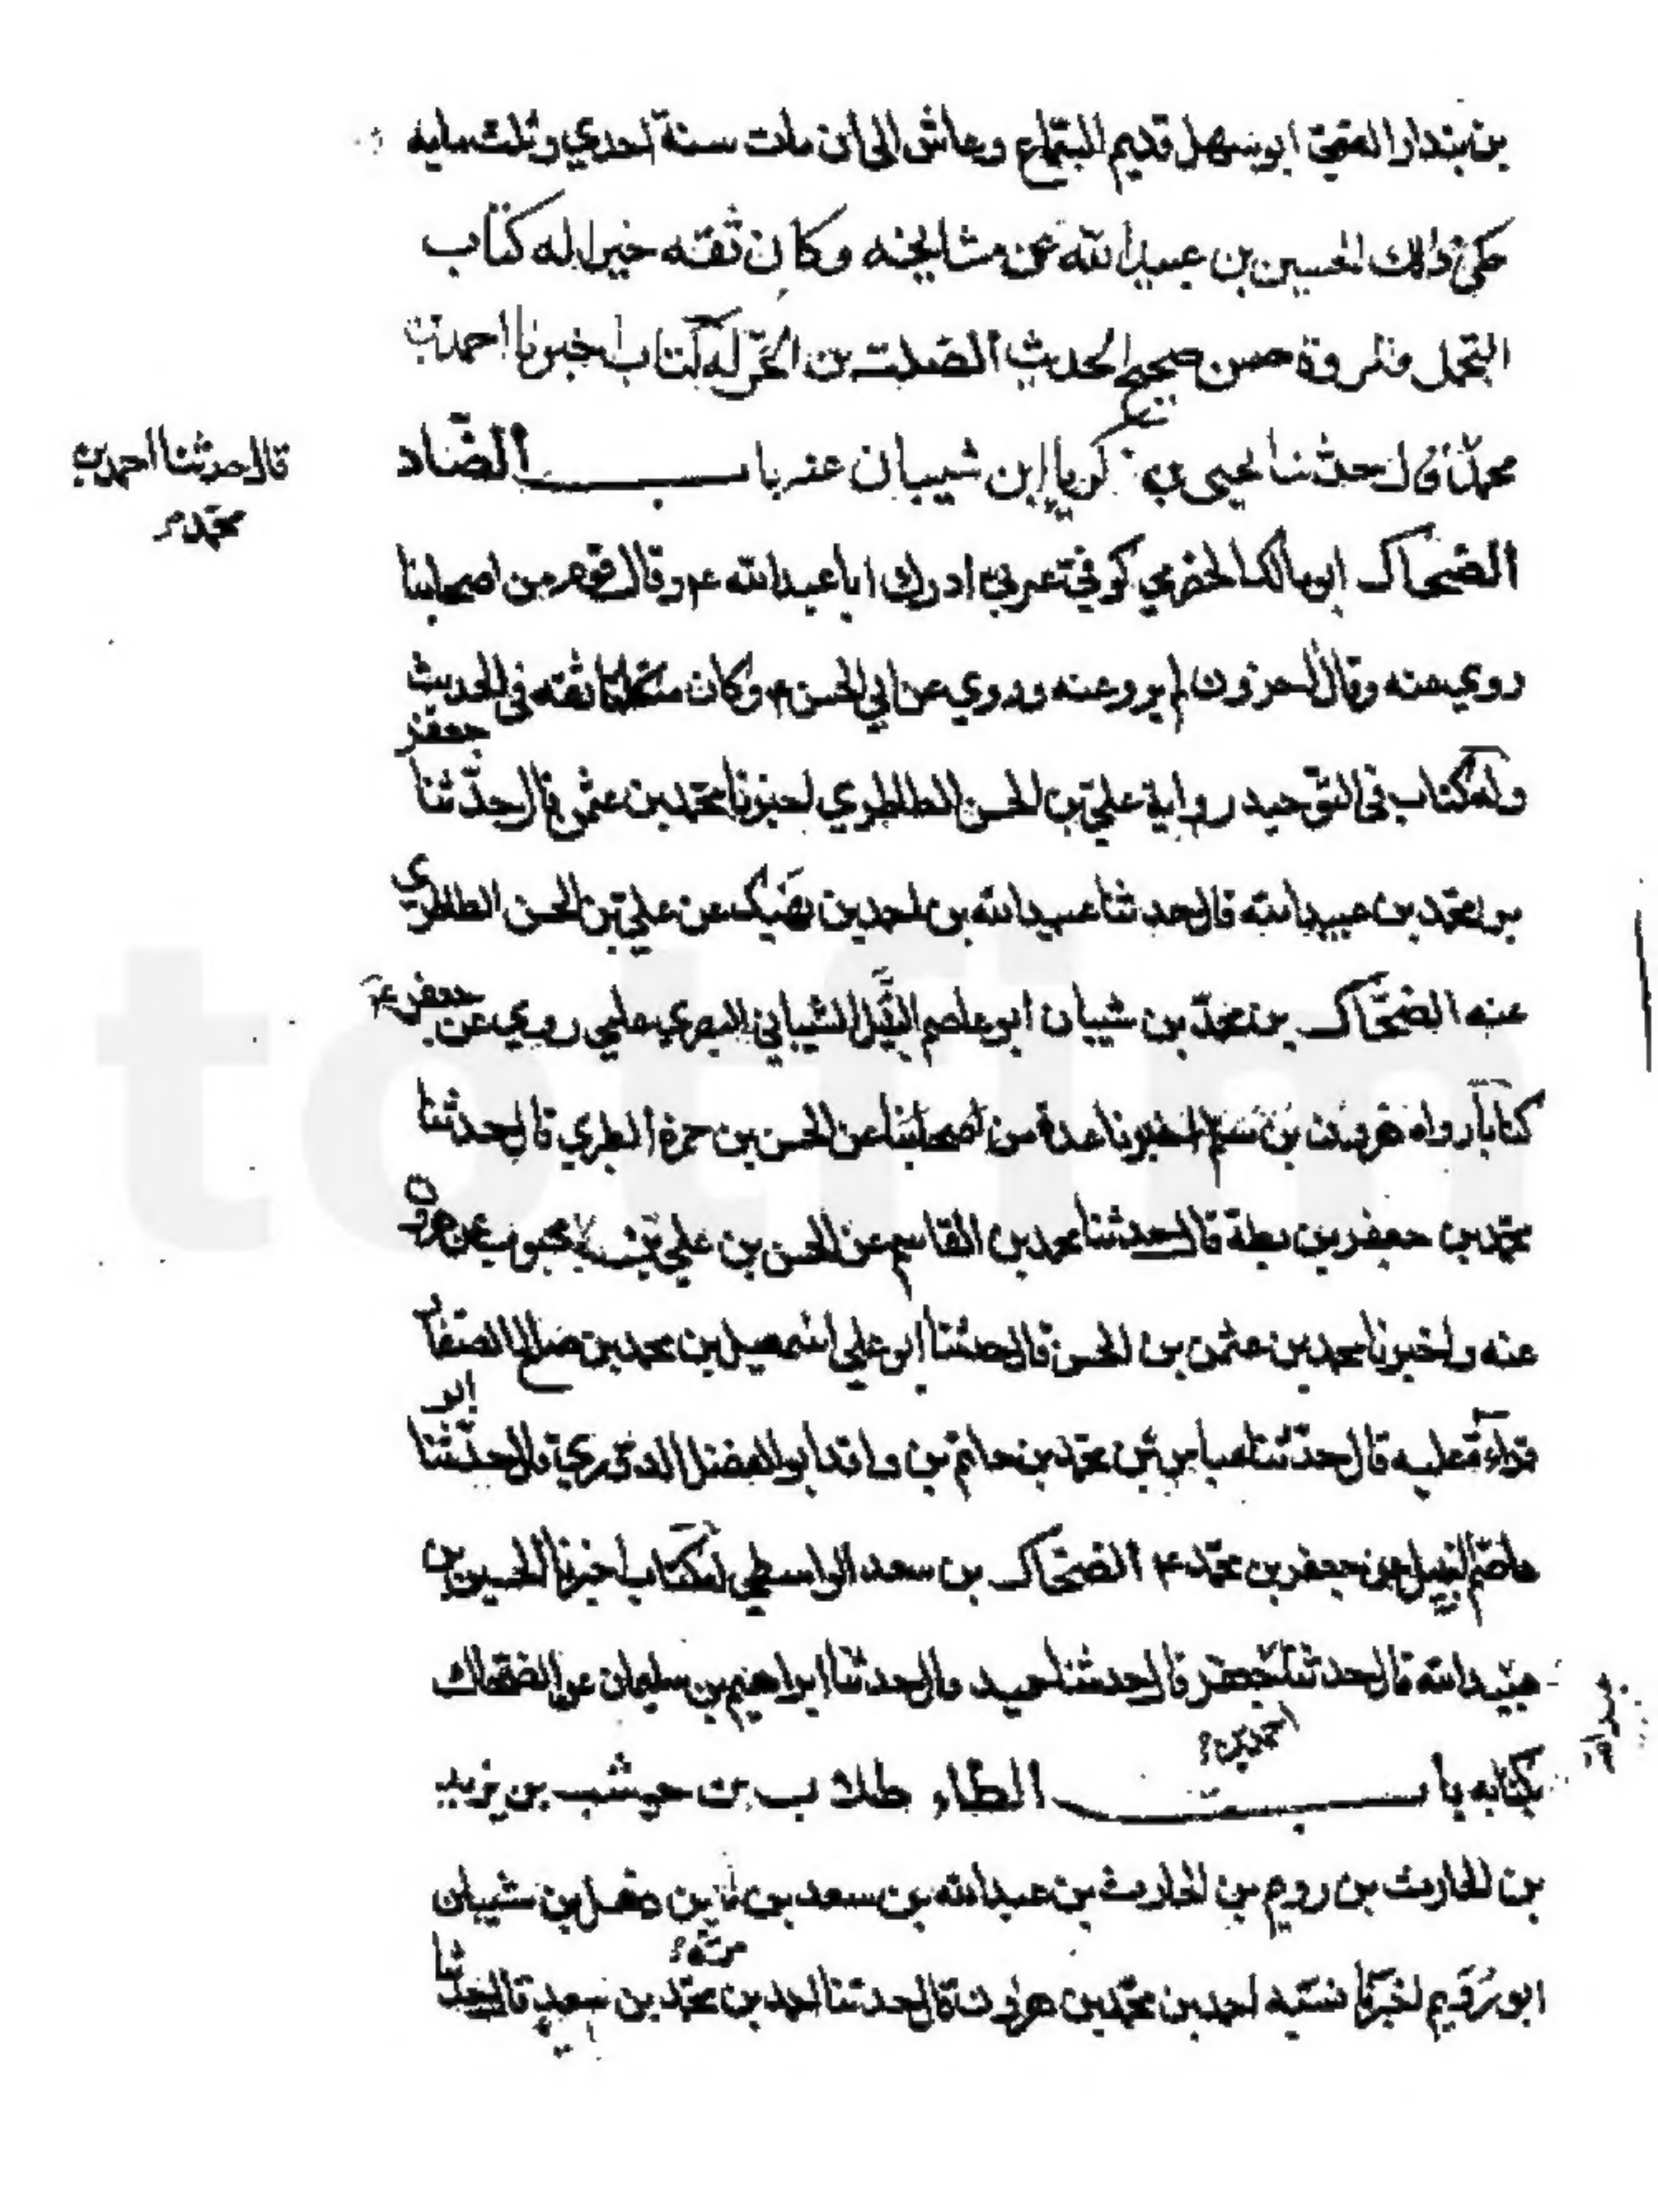 بن بندار القمي ابو سهل قديم السماع وعاش الى ان مات سنة احدي وثلث مايه
حكى ذلك الحسين بن عبيد الله عن مشايخه وكان ثقه خيرا له كتاب
التجمل والمروة حسن صحيح الحديث الصلت بن الحر له كتاب اخبرنا احمد بن
محمد قال حدثنا يحيى بن زكريا ابن شيبان عنه باب الضاد
قال حدثنا احمد بن
محمد
الضحاك ابو مالك الحضرمي كوفي عربي ادرك ابا عبد الله عم وقال قوم من اصحابنا
روي عنه وقال اخرون لم يرو عنه وروي عن ابي الحسن م وكان متكلما ثقه في الحديث
جعفر
وله كتاب في التوحيد رواية علي بن الحسن الطاطري اخبرنا محمد بن عثمن قال حدثنا
بن محمد بن عبيد الله قال حدثنا عبيد الله بن احمد بن نهيك عن علي بن الحسن الطاطري
عنه الضحاك بن محمد بن شيبان ابو عاصم النبيل الشيباني البصري عامي روي عن جعفر عم
كتابا رواه هرون بن مسلم اخبرنا عدة من اصحابنا عن الحسن بن حمزة الطبري قال حدثنا
محمد بن جعفر بن بطة قال حدثنا محمد بن القاسم عن الحسن بن علي بن محبوب عن هرون
عنه واخبرنا محمد بن عثمن بن الحسن قال حدثنا ابو علي اسمعيل بن محمد بن صالح الصفار
ابو
قراءة عليه قال حدثنا عباس بن محمد بن حاتم بن واقد ابو الفضل الدوري قال حدثنا
عاصم النبيل عن جعفر بن محمد عم الضحاك بن سعد الواسطي له كتاب اخبرنا الحسين بن
عبيد الله قال حدثنا جعفر قال حدثنا حميد قال حدثنا ابراهيم بن سليمان عن الضحاك
احمد بن
بكتابه باب الطاء طلاب بن حوشب بن يزيد
بن الحارث بن رويم بن الحارث بن عبد الله بن سعد بن بن ذهل بن شيبان
مره
ابو رويم اخبرنا نسبه احمد بن محمد بن هرون قال حدثنا احمد بن محمد بن سعيد قال حدثنا